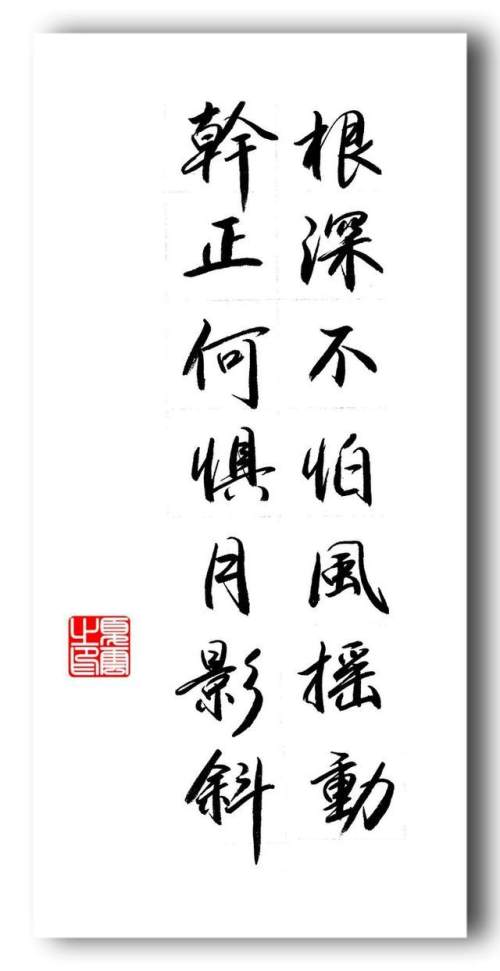 根深不怕風摇動
幹正何惧月影斜